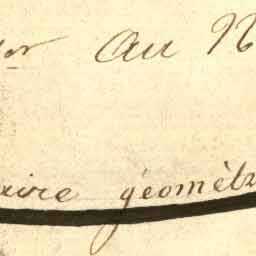 au N
aire géomèt